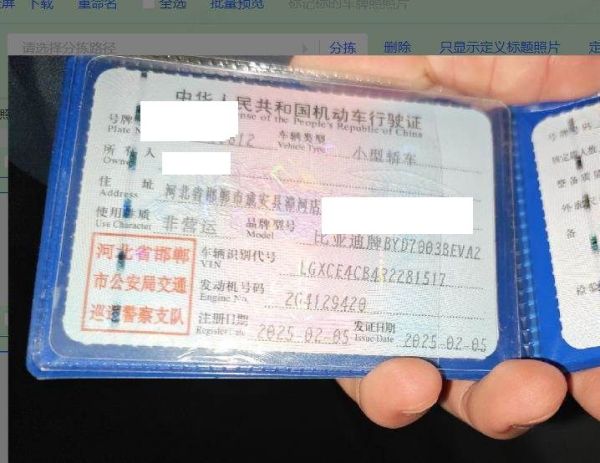 下载
重命名
全选
批量预览
标记标的车牌照照片
请选择分拣路径
分拣
删除
只显示定义标题照片
中华人民共和国机动车行驶证
ense of the People's Republic of China
号牌
Plate N
612
车辆类型
Vehicle Type
小型轿车
所有人
Owne
住址
Address
河北省邯郸市成安县漳河店
使用性质
Use Character
非营运
品牌型号
Model
比亚迪牌BYD7003BEVA2
河北省邯郸
市公安局交通
巡逻警察支队
车辆识别代号
VIN
LGXCE4CB4S2281517
发动机号码
Engine No.
2G4129420
注册日期
Register Date
2025-02-05
发证日期
Issue Date
2025-02-05